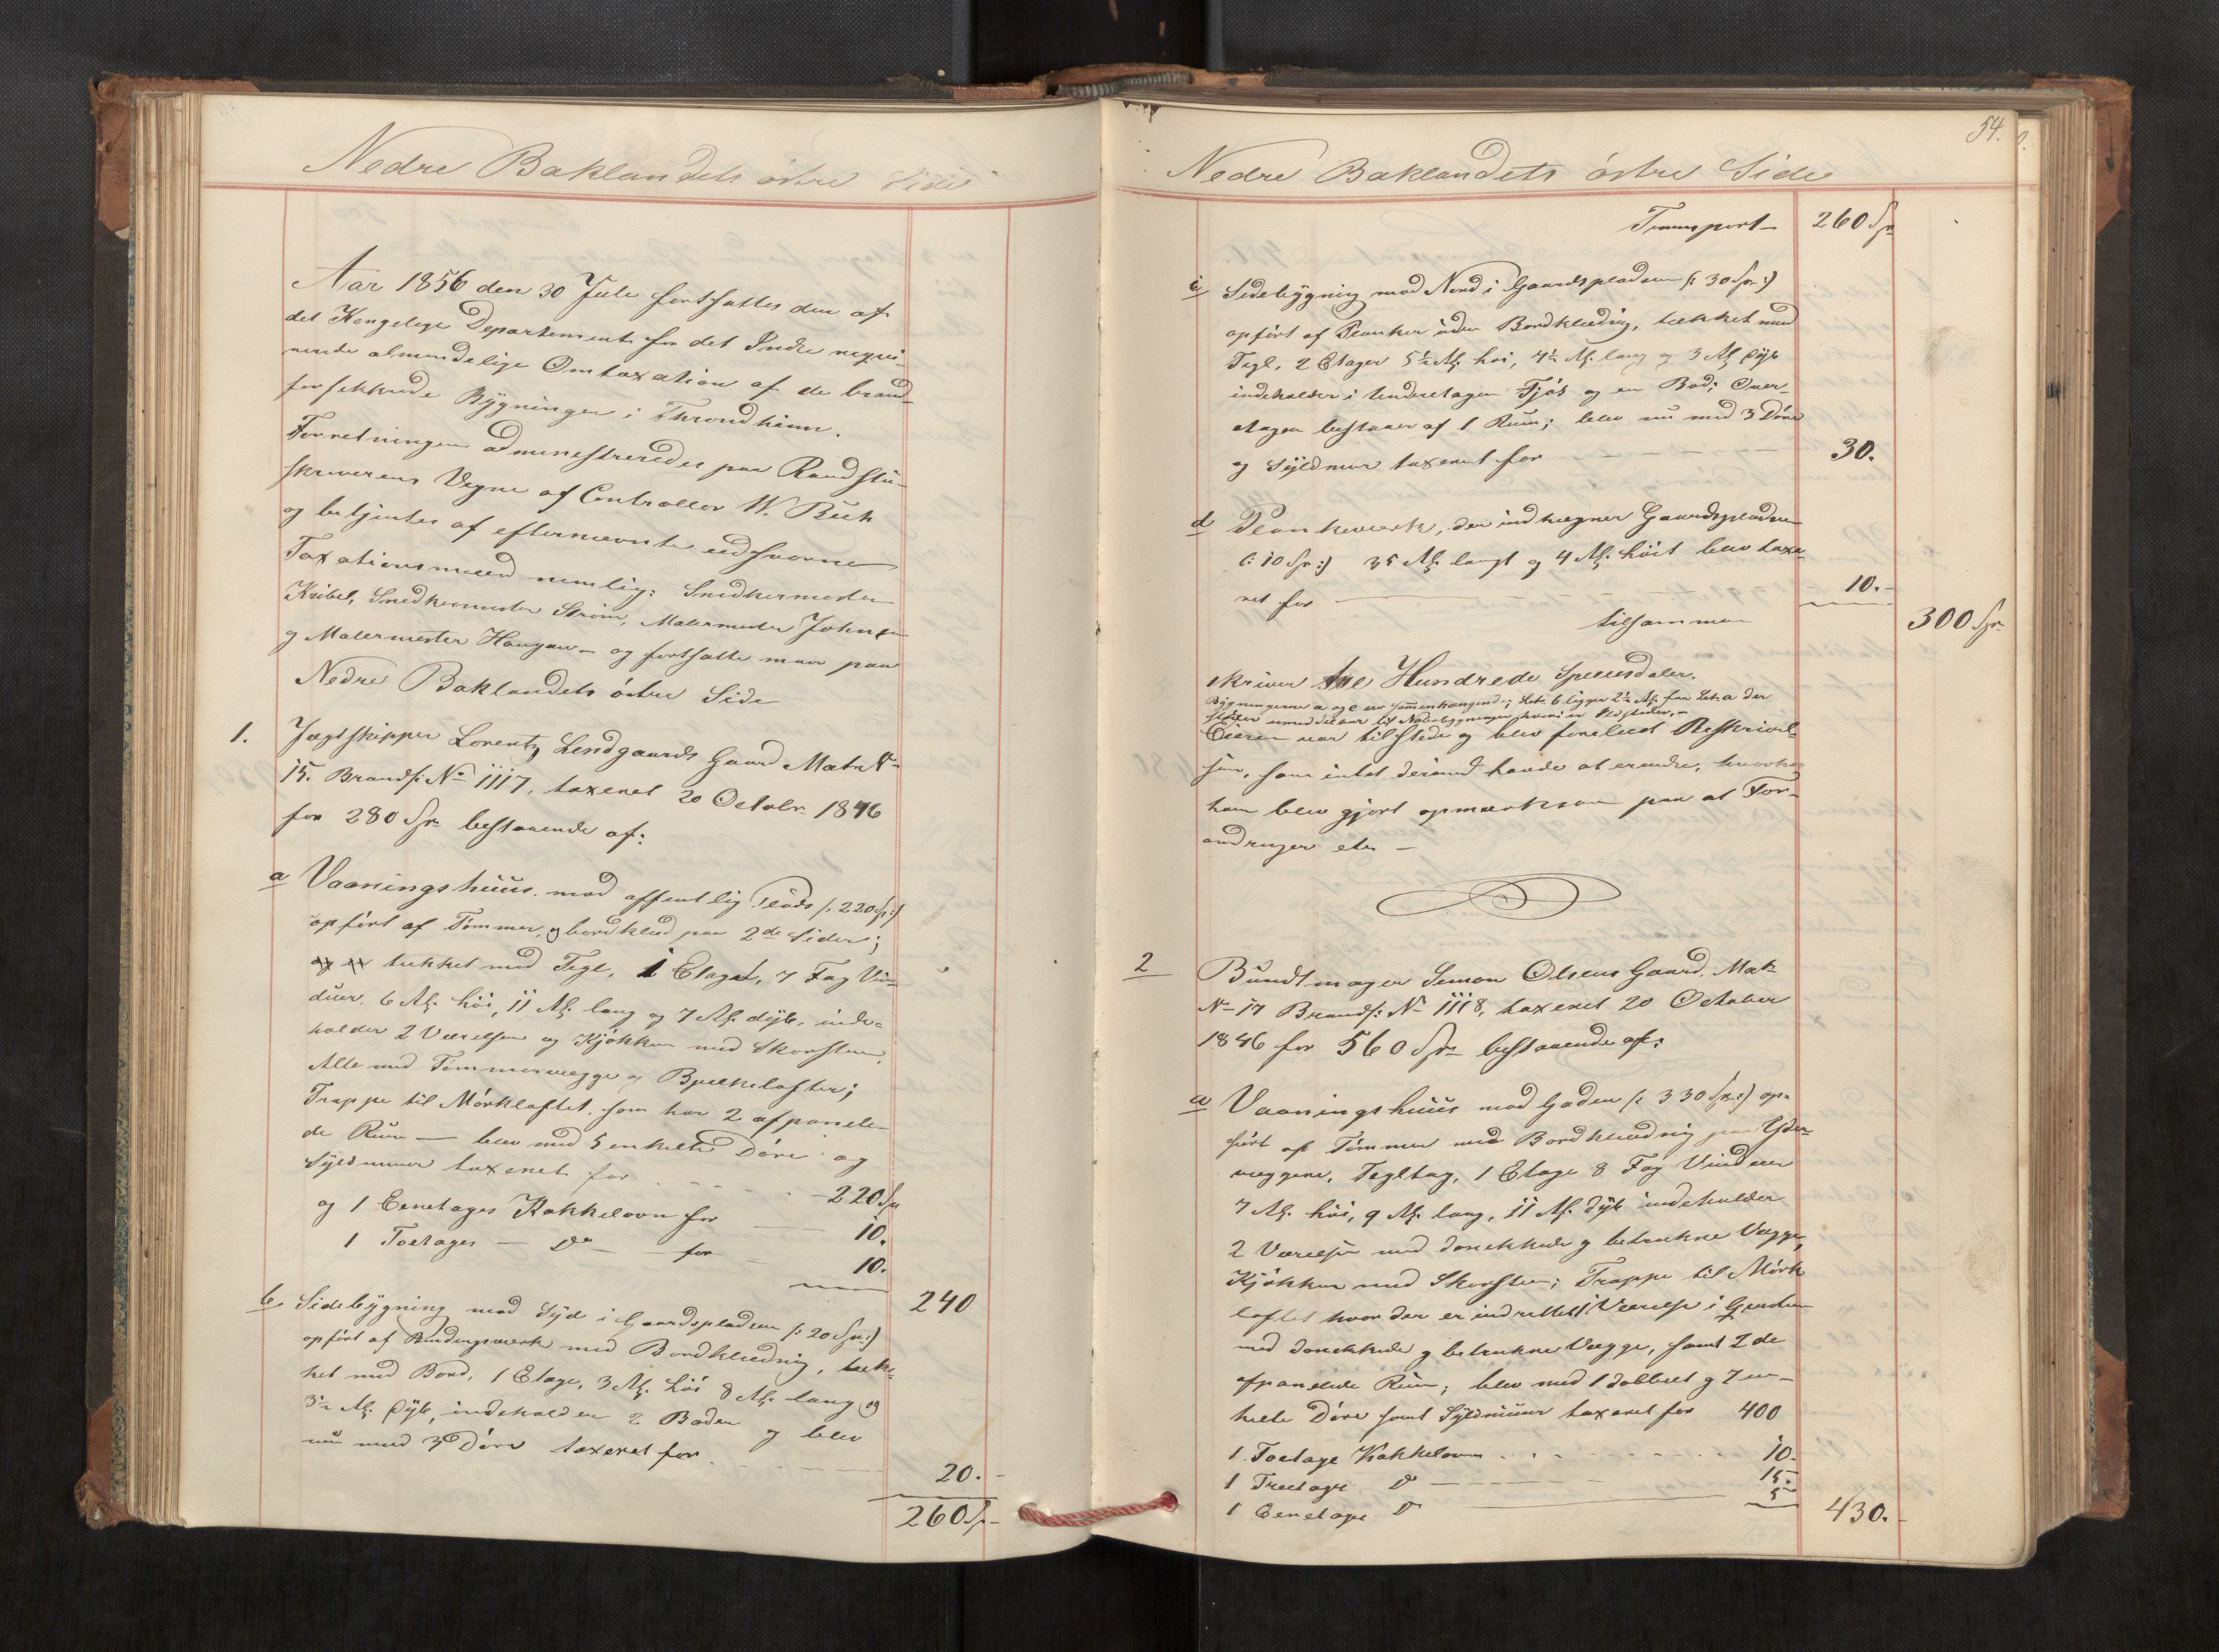 Nedre Baklandets östre Side
Aar 1856 den 30 Juli fortsattes den af
det Kongelige Departement for det Indre reqvi-
rerede almindelige Omtaxation af de brand-
forsikkrede Bygninger i Throndhiem.
Forretningen administreredes paa Raadstu-
skriverens Vegne af Controllør W. Buch
og betjentes af efternævnte eedsvorne
Taxationsmænd nemlig: Snedkermester
Kribel, Snedkermester Strøm, Malermester Johnsen
og Malermester Haugan - og fortsatte man paa
Nedre Baklandets östre Side
1. Jægtskipper Lorentz Lendgaards Gaard Matr. N-
15. Brandf: No 1117, taxeret 20 Octobr. 1846
for 280 Spd bestaaende af:
a Vaaningshuus mod offentlig Plads /: 220 Sp :/
opført af Tømmer, og bordklæd paa 2de Sider;
tækket med Tegl, 1 Etage, 7 Fag Vin-
duer, 6 Al. høi, 11 Al. lang og 7 Al. dyb, inde-
holder 2 Værelser og Kjøkken med Skorsteen,
Alle med Tømmervægge og Bjelkelofter;
Trappe til Mørkloftet, som har 2 afpanele-
de Rum — blev med 5 enkelte Døre og
Syldmuur taxeret for - - - 220 Spd
og 1 Eenetages Kakkelovn for — 10.
1 Toetages — Do — for — 10.
240
b Sidebygning mod Syd i Gaardspladsen /: 20 Spd :/
opført af Bindingsværk med Bordklædning, tæk-
ket med Bord, 1 Etage, 3 Al. høi 8 Al. lang og
3½ Al. dyb, indeholder 2 Boder og blev
nu med 3 Døre taxeret for - - - 20.-
260 Sp-
54.
Nedre Baklandets östre Side
Transport- 260 Spd
c Sidebygning mod Nord i Gaardspladsen /: 30 Spd :/
opført af Planker uden Bordklædnig, tækket med
Tegl, 2 Etager 5½ Al. høi, 4½ Al. lang og 3 Al. dyb
indeholder i Underetagen Fjøs og en Bod; Over-
etagen bestaaer af 1 Rum; blev nu med 3 Døre
og Syldmuur taxeret for - - - 30.
d Plankeværk, der indhegner Gaardspladsen
/: 10 Sp :/ 35 Al. langt og 4 Al. høit blev taxe-
ret for — 10.-
tilsammen 300 Spd
skriver tre Hundrede Speciesdaler.
Bygningerne a og c ere sammenhængende; Litr. b ligger 2½ Al. fra Litr. a der
støder umiddelbar til Nabobygninger hvori er Ildsteder.-
Eieren var tilstede og blev forelæst Beskrivel-
sen, som intet derimod havde at erindre, hvorhos
han blev gjort opmærksom paa at For-
andringer etc —
2 Bundtmager Simon Olsens Gaard, Mat-
N- 17 Brandf: No 1118, taxeret 20 October
1846 for 560 Spd bestaaende af:
a Vaaningshuus mod Gaden /: 330 Spd :/ op-
ført af Tømmer med Bordklædnig paa Yder-
væggene, Tegltag, 1 Etage 8 Fag Vinduer
7 Al. høi, 9 Al. lang, 11 Al. dyb indeholder
2 Værelser med donekkede og betrukne Vægge,
Kjøkken med Skorsteen; Trappe til Mørk
loftet hvor der er indrettet 1 Værelse i Gavlen
med donekkede og betrukne Vægge, samt 2 de
afpanelede Rum; blev med 1 dobbelt og 7 en-
kelte Døre samt Syldmuur taxeret for 400
1 Toetage Kakkelovn - - - 10.
1 Treetage Do — 15.
1 Eenetage Do — 5
430.-